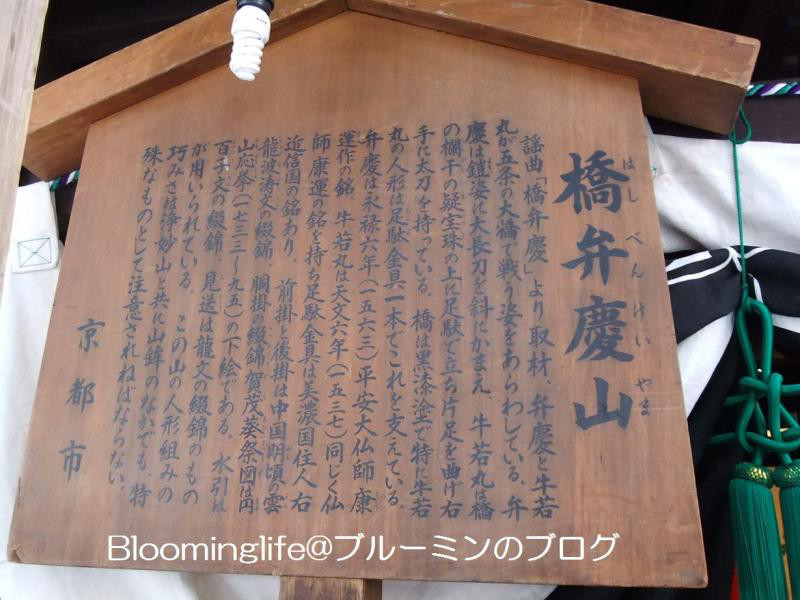 橋弁慶山
はしべんけいやま
謡曲「橋弁慶」より取材 弁慶と牛若
丸が五条の大橋で戦う姿をあらわしている。弁
慶は鎧姿に大長刀を斜にかまえ、牛若丸は橋
の欄干の疑宝珠の上に足駄で立ち片足を曲げ右
手に太刀を持っている。橋は黒漆塗で特に牛若
丸の人形は足駄金具一本でこれを支えている。
弁慶は永禄六年(一五六三)平安大仏師康
運作の銘、牛若丸は天文六年(一五三七)同じく仏
師康運の銘を持ち足駄金具は美濃国住人右
近信国の銘あり、前掛と後掛は中国明頃の雲
龍波涛文の綴錦、胴掛の綴錦賀茂葵祭図は円
山応挙(一七三三〜九五)の下絵である。水引は
百子文の綴錦、見送は龍文の綴錦のもの
が用いられている。この山の人形組みの
巧みさは浄妙山と共に山鉾のなかでも、特
殊なものとして注意されねばならない。
京都市
Bloominglife@ブルーミンのブログ